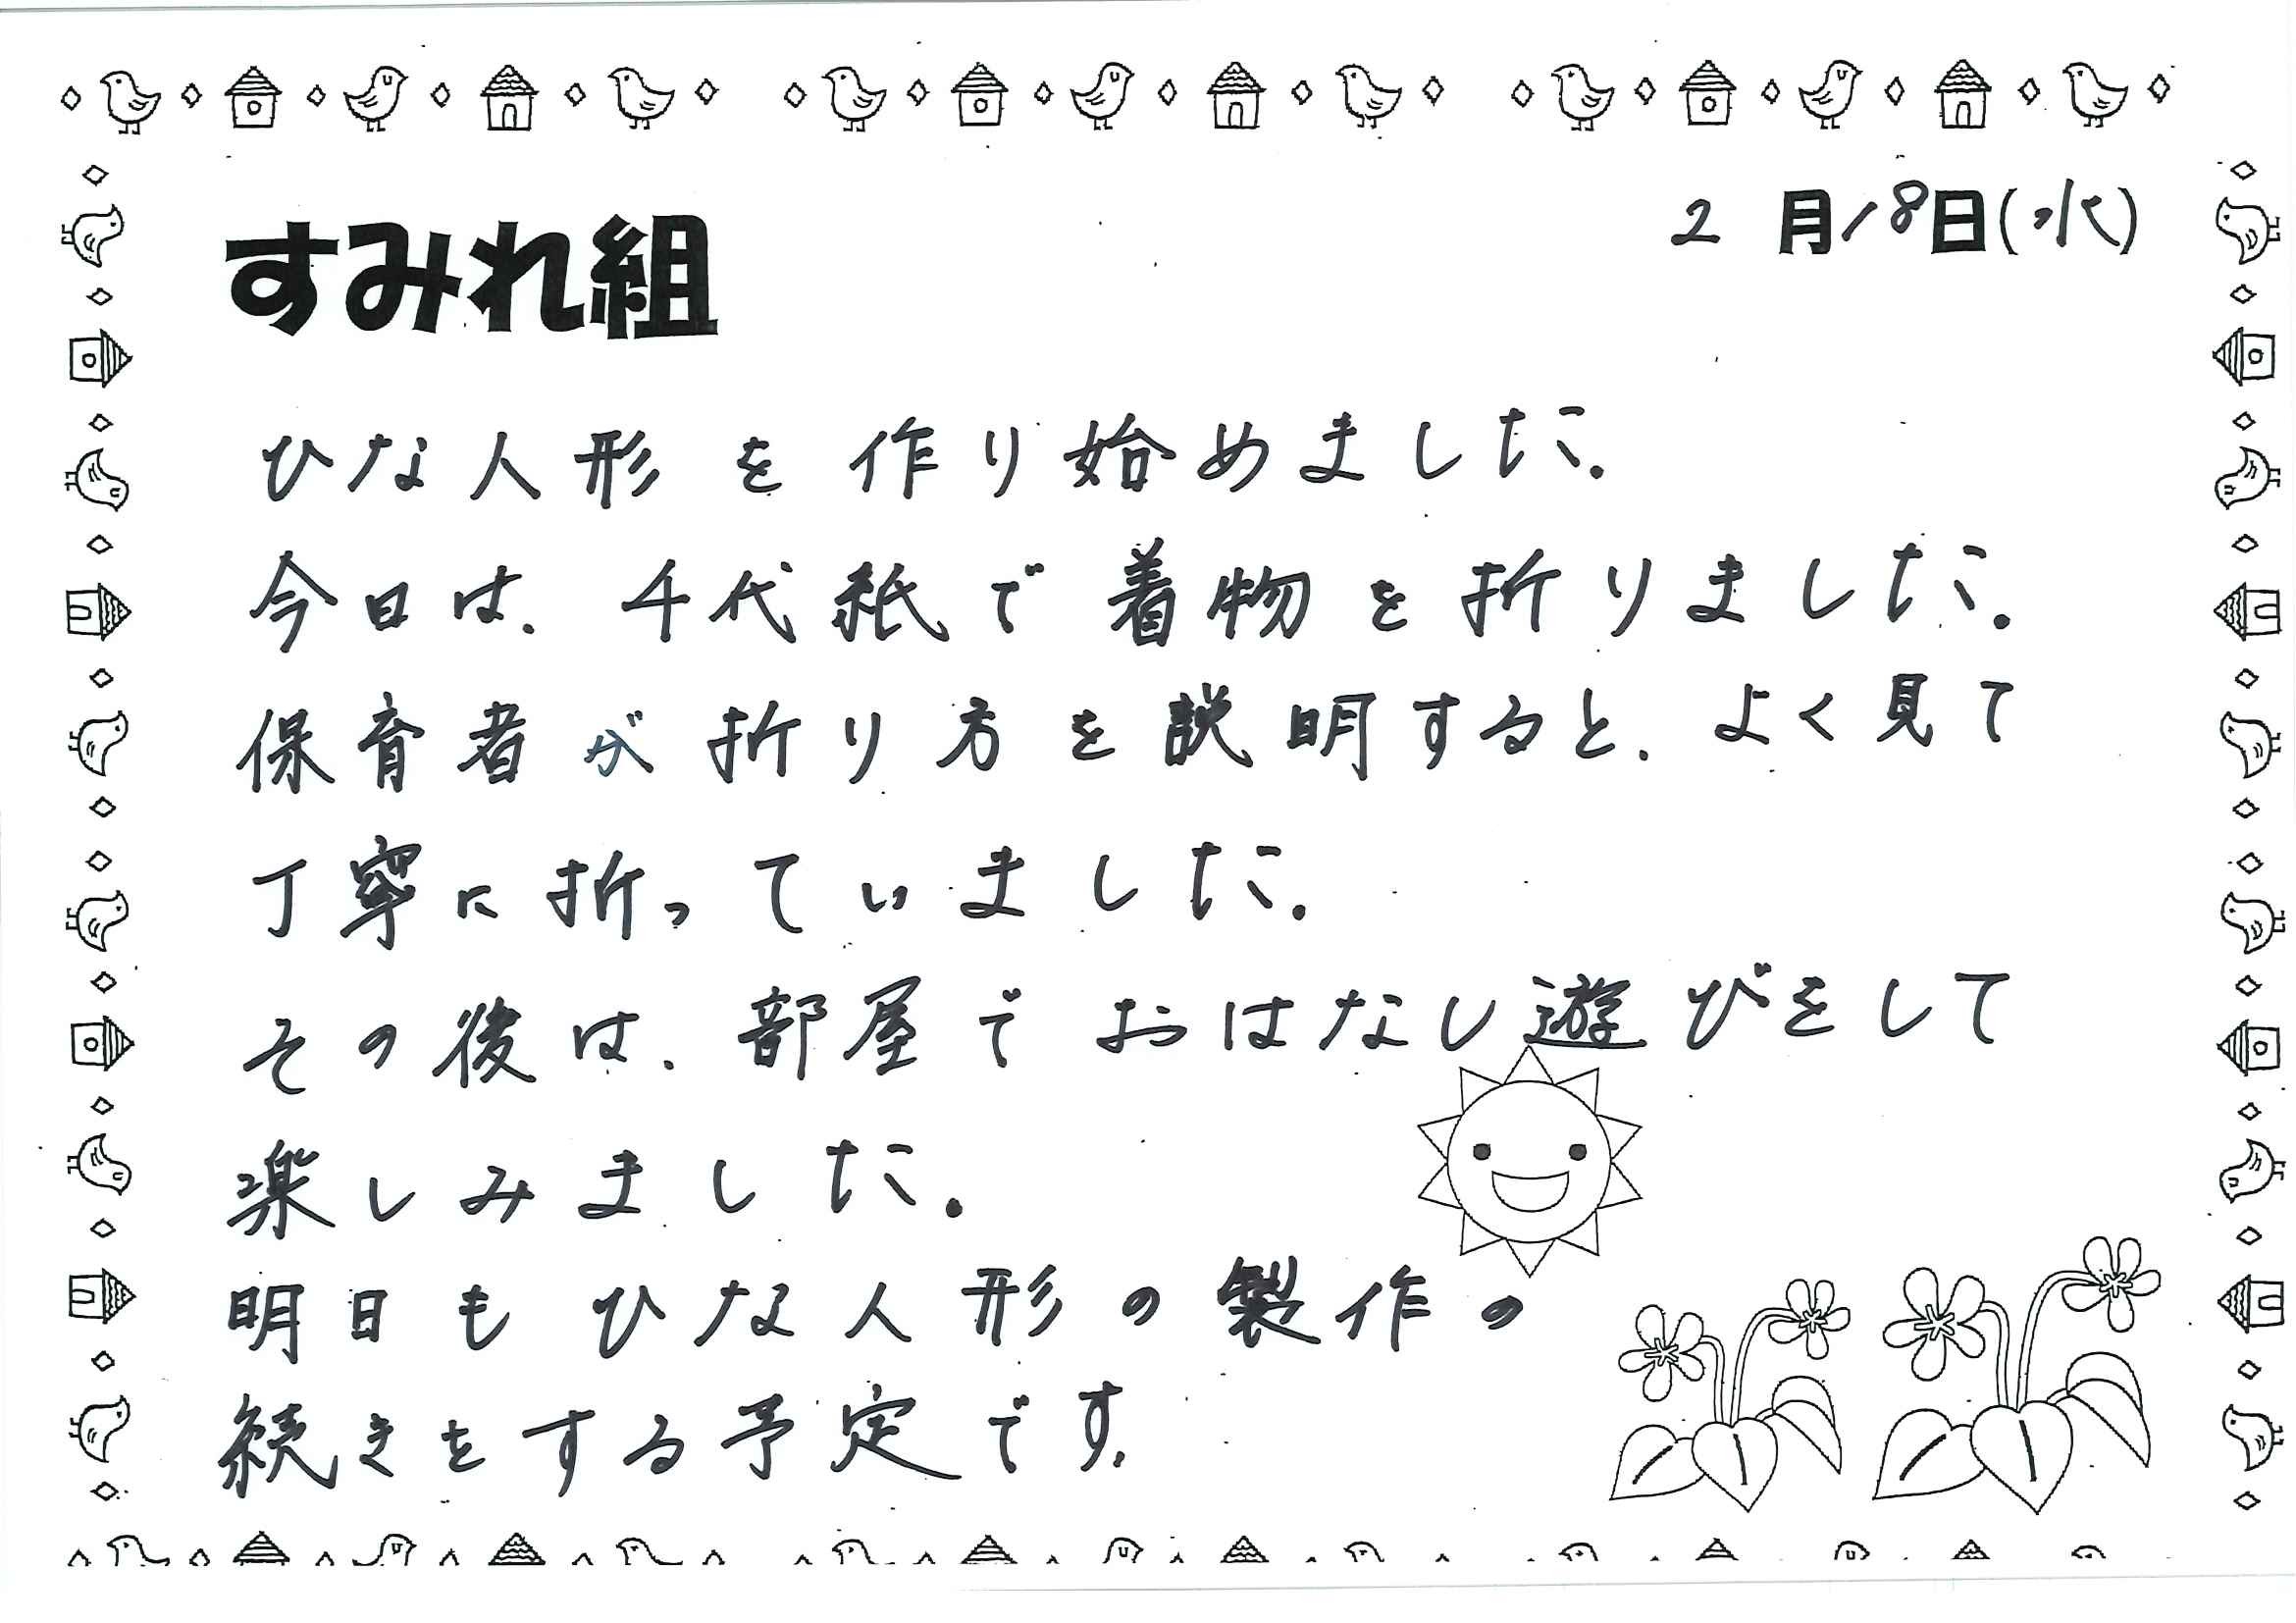 2月18日(水)
すみれ組
ひな人形を作り始めました。
今日は、千代紙で着物を折りました。
保育者が折り方を説明すると、よく見て
丁寧に折っていました。
その後は、部屋でおはなし遊びをして
楽しみました。
明日もひな人形の製作の
続きをする予定です。